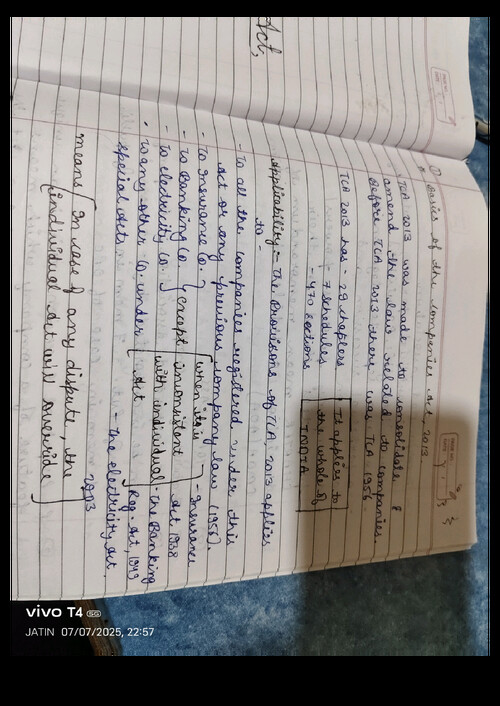 Act,
① Basics of the companies Act, 2013
TCA 2013 was made to consolidate &
amend the law related to companies.
Before TCA 2013 there was TCA 1956.
TCA 2013 has - 29 chapters
- 7 schedules
- 470 sections
It applies to
the whole of
INDIA
Applicability - The Provisions of TCA, 2013 applies
to -
- To all the companies registered under this
Act or any previous company law (1956).
- To Insurance Co.
- To Banking Co.
- To electricity Co.
except
when it is
inconsistent
with individual
Act
- Insurance
Act 1938
- The Banking
Reg. Act, 1949
- The electricity Act,
2003
- To any other Co. under
special Acts
means In case of any dispute, the
individual Act will override
vivo T4 5G
JATIN 07/07/2025, 22:57